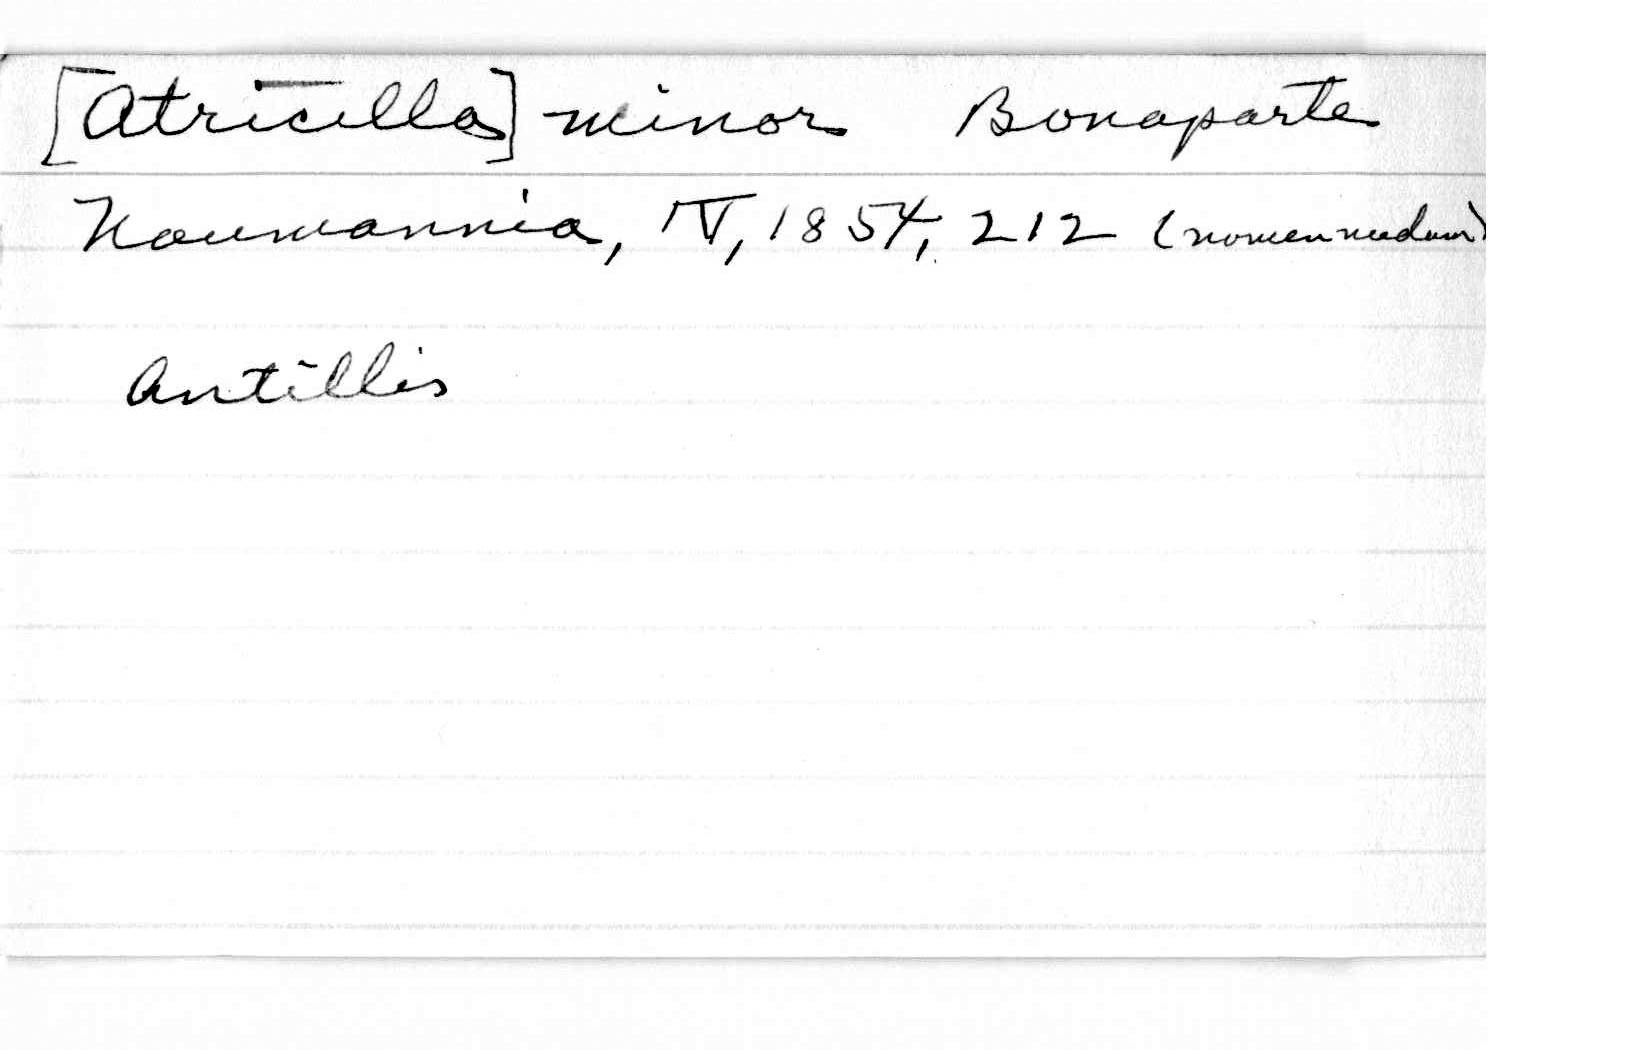 [Atricilla] minor Bonaparte
Naumannia, IV, 1854, 212 (nomen nudum)
Antillis